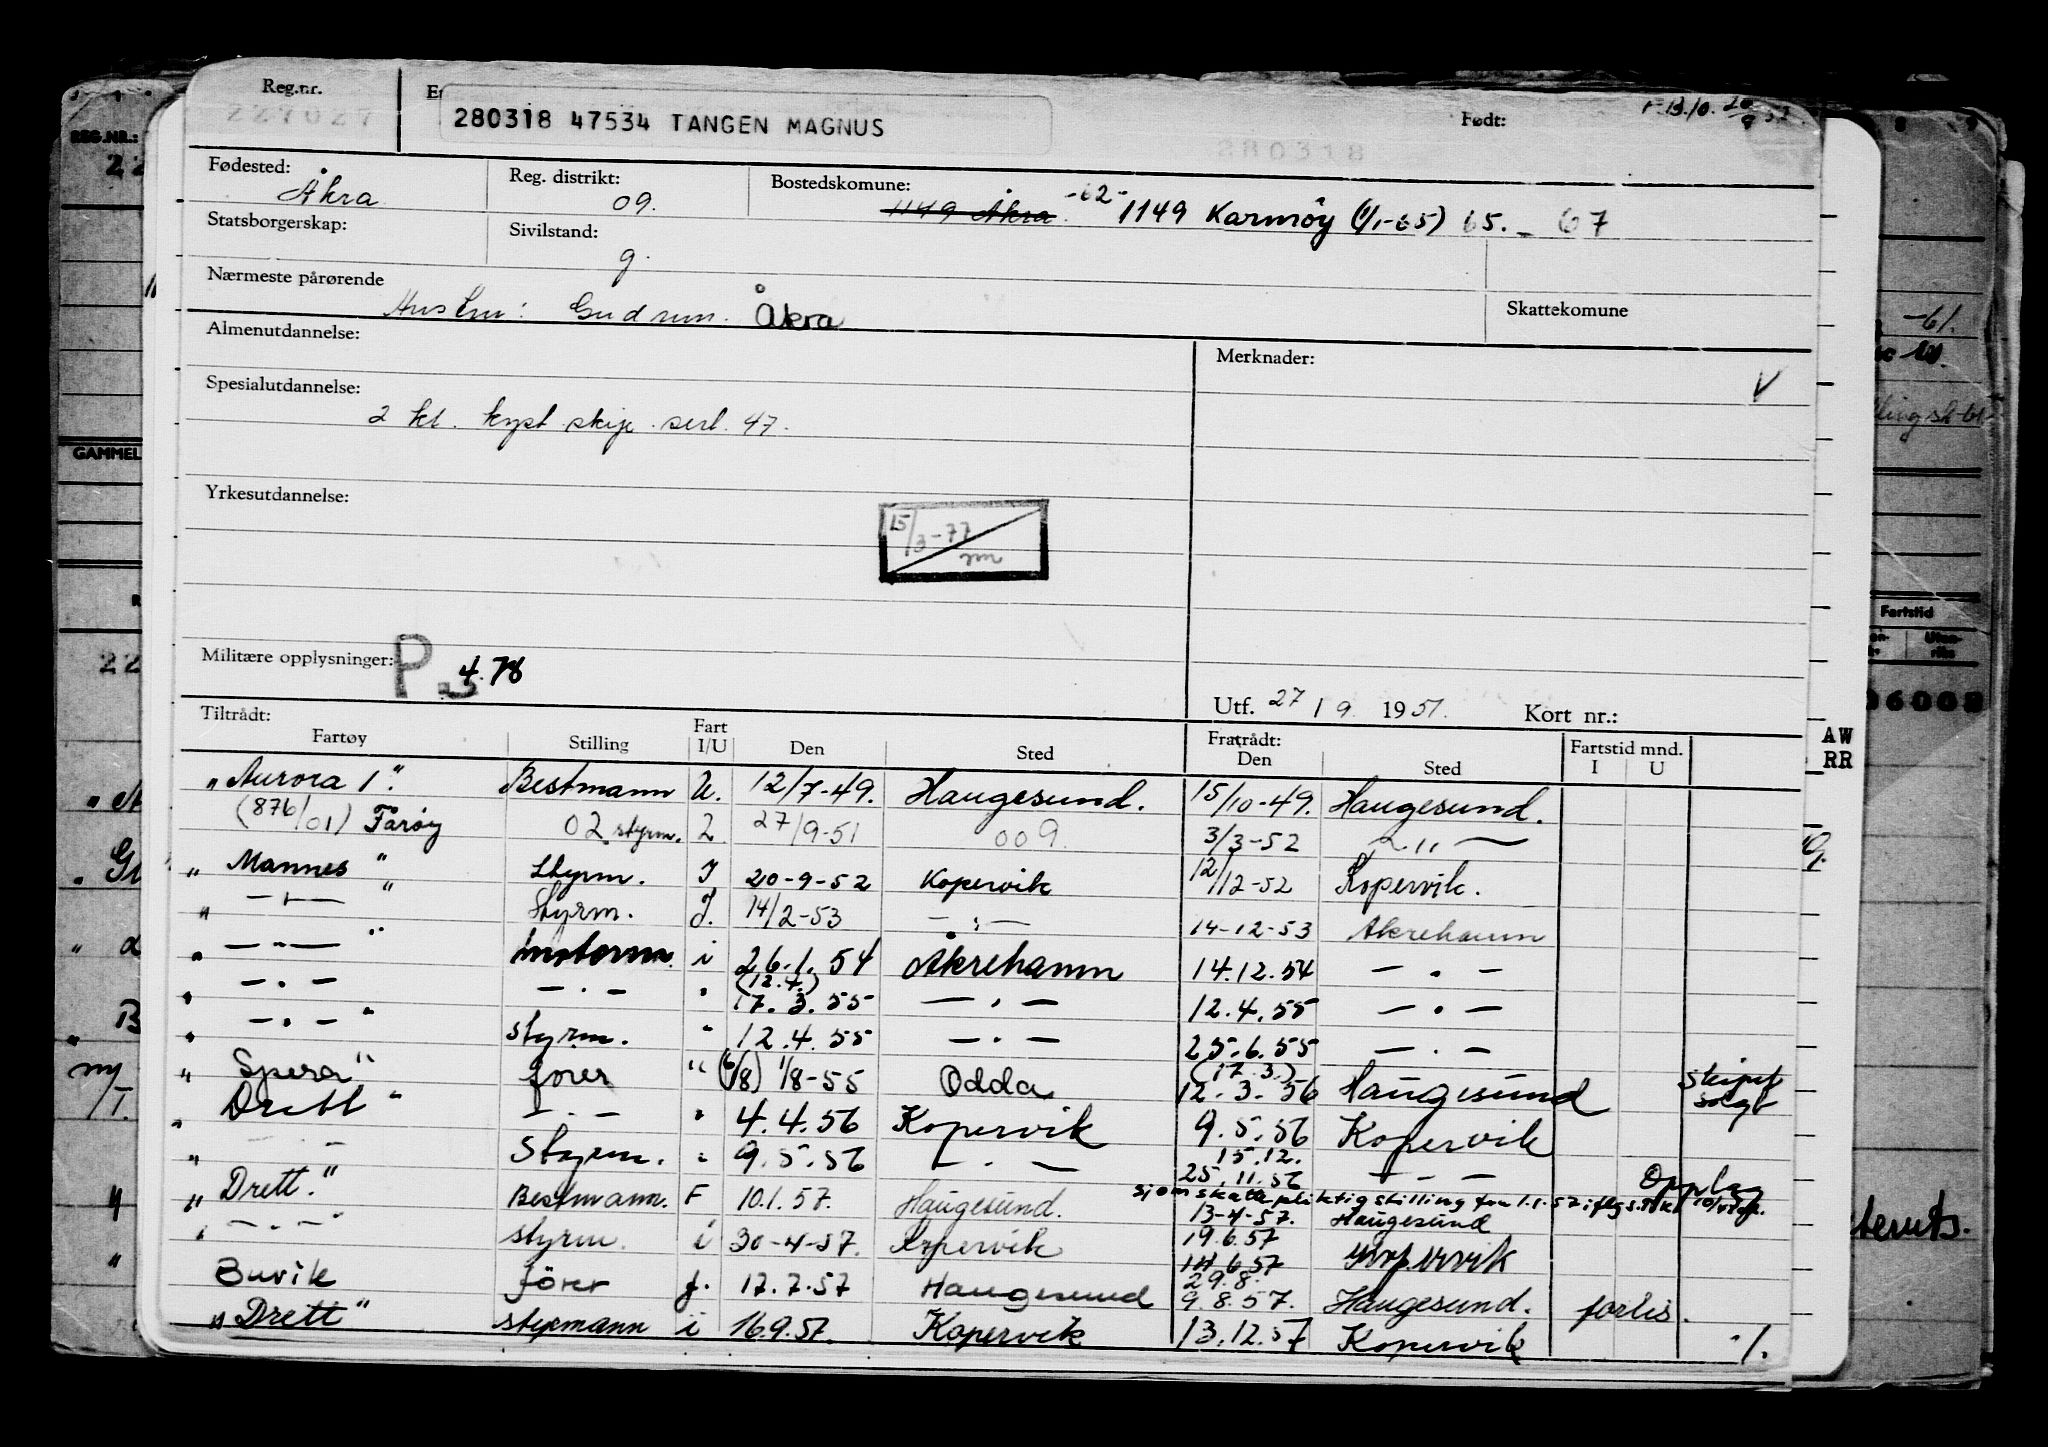 Reg.nr. Født:
227027 280318 47534 TANGEN MAGNUS 280318
Fødested: Reg. distrikt: Bostedskomune:
Åkra 09. 1149 Åkra -62- 1149 Karmöy (1/1-65) 65. - 67
Statsborgerskap: Sivilstand:
g.
Nærmeste pårørende Skattekomune
Hustru: Gudrun. Åkra
Almenutdannelse: Merknader:
Spesialutdannelse: V
2 kl. kyst skip. sert. 47.
Yrkesutdannelse:
15/3-77
Militære opplysninger: P 4.78
Utf. 27 / 9 1951. Kort nr.:
Tiltrådt: Fratrådt:
Fartøy Stilling Fart I/U Den Sted Den Sted Fartstid mnd. I U
"Aurora 1". Bestmann U. 12/7-49. Haugesund. 15/10-49. Haugesund.
(876/01) Farøy 02 styrm. 2 27/9-51 009. 3/3-52 - " -
"Mannes" Styrm. I 20-9-52 Kopervik 12/12-52 Kopervik.
" - " - " Styrm. I. 14/2-53 - " - 14-12-53 Åkrehamn
" - " - " motorm. i 26.1.54 Åkrehamn 14.12.54 - " -
" - " - - " - " (12.4.) 17.3.55 - " - 12.4.55 - " -
" - " - " styrm. " 12.4.55 - " - 25.6.55 - " -
"Spera" fører " (6/8) 1/8-55 Odda (17.3.) 12.3.56 Haugesund skipet solgt
"Drett" - " - " 4.4.56 Kopervik 9.5.56 Kopervik
" - " - Styrm. " 9.5.56 - " - 15.12. 25.11.56 - " - Opplag
sjømskattepliktig stilling fra 1.1.57 iflg.
"Drett." Bestmann. F 10.1.57. Haugesund. 13-4-57. Haugesund
" - " - " styrm. i 30-4-57. Kopervik 19.6.57 14.6.57 Kopervik
Buvik fører f. 17.7.57 Haugesund 29.8. 9.8.57. Haugesund. forlis.
"Drett" styrmann i 16.9.57. Kopervik 13.12.57 Kopervik ./.
REG.NR.:
22
GAMMEL
22
Fartstid
06008
AW
RR
-61.